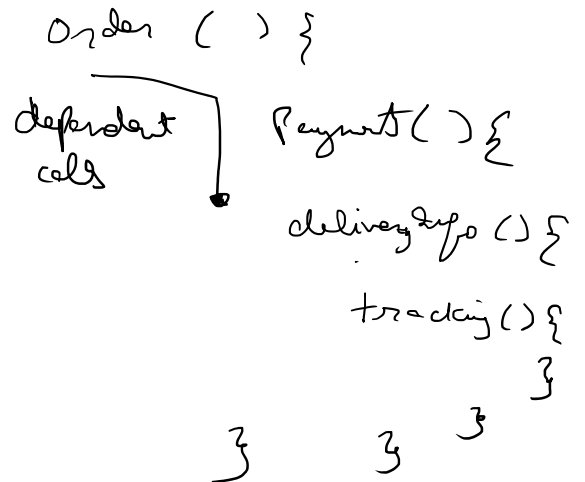 Order ( ) {
dependent
calls
Payment ( ) {
deliveryInfo ( ) {
tracking ( ) {
}
}
} }